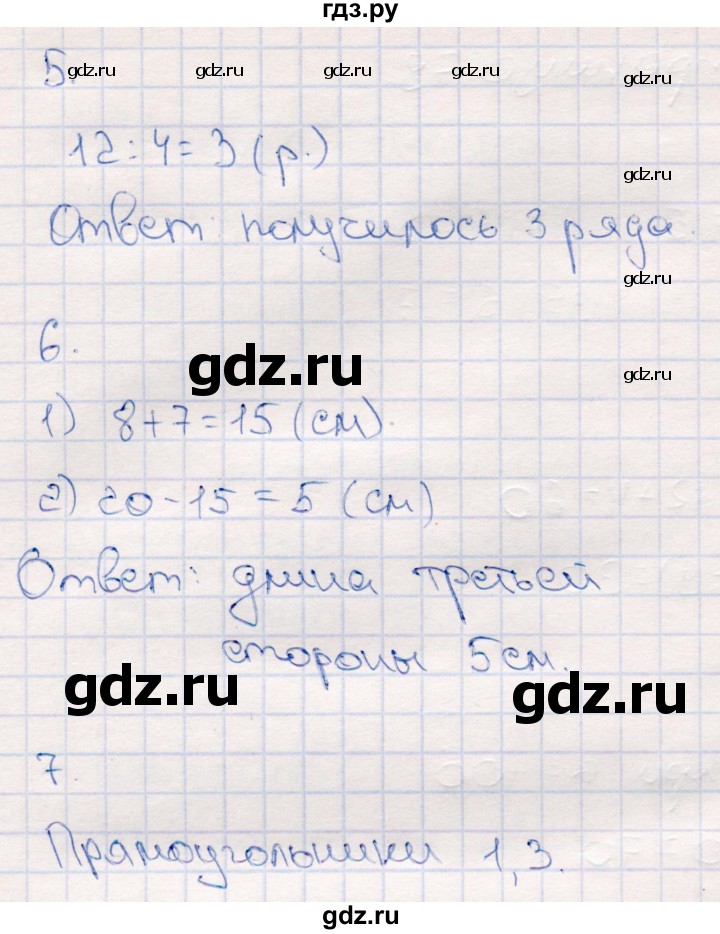 гдз.ру
5.
gdz.ru gdz.ru gdz.ru gdz.ru
gdz.ru
12:4=3(р.)
gdz.ru
Ответ: получилось 3 ряда.
gdz.ru
6.
gdz.ru
gdz.ru
1) 8+7=15(см).
2) 20-15=5(см)
Ответ: длина третьей
стороны 5см.
gdz.ru
gdz.ru
7
Прямоугольники 1,3.
gdz.ru